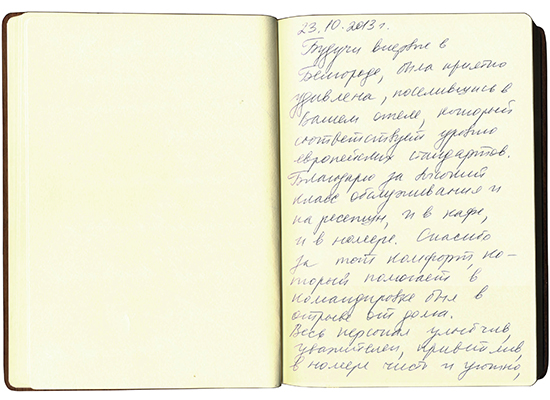 23.10.2013г.
Будучи впервые в
Белгороде, была приятно
удивлена, поселившись в
Вашем отеле, который
соответствует уровню
европейских стандартов.
Благодарю за высший
класс обслуживания и
на ресепшн, и в кафе,
и в номере. Спасибо
за тот комфорт, ко-
торый помогает в
командировке был в
отрыве от дома.
Весь персонал улыбчив,
уважителен, приветлив,
в номере чисто и уютно,